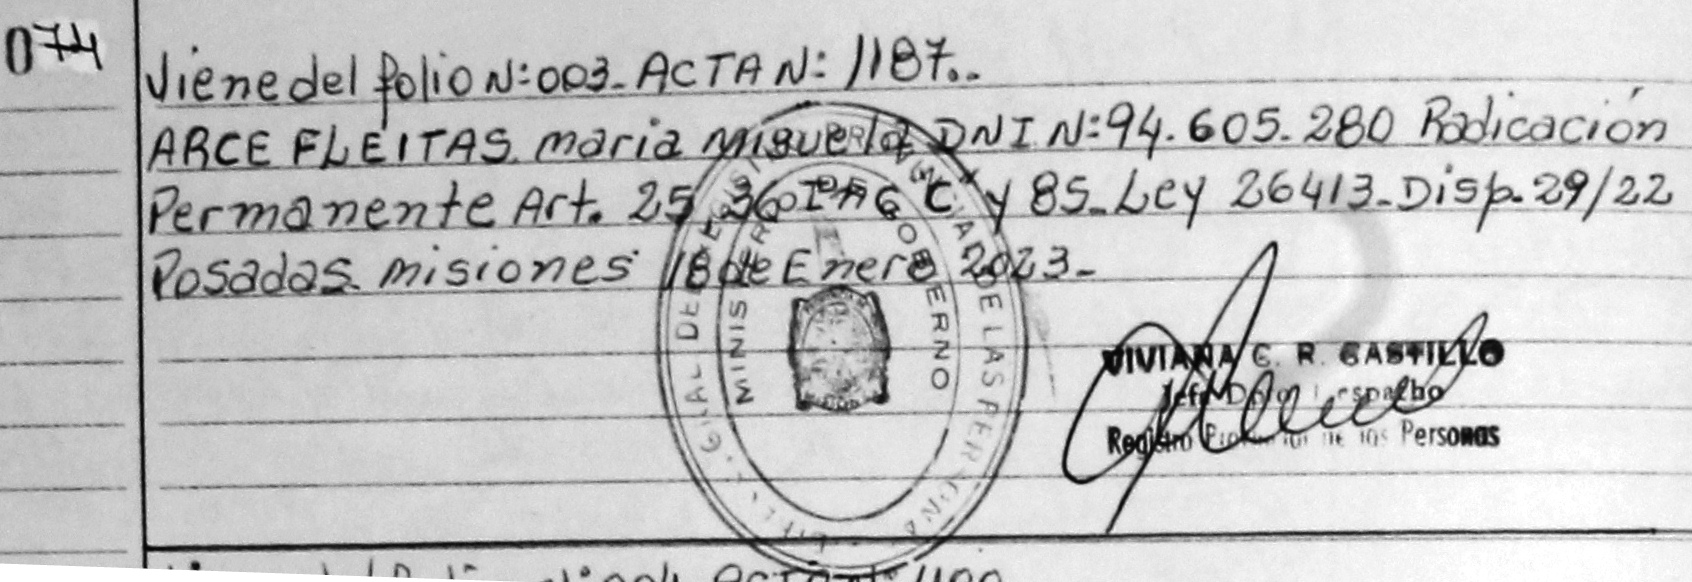 074
Viene del folio N:003- ACTA N: 1187..
ARCE FLEITAS. maria miguela DNI N:94.605.280 Radicación
Permanente Art. 25, 36 "C" y 85- Ley 26413- Disp. 29/22
Posadas. misiones 18 de Enero 2023-
MINISTERIO GOBIERNO
GRAL DE LAS PERSONAS
VIVIANA C. R. CASTILLO
Registro de las Personas